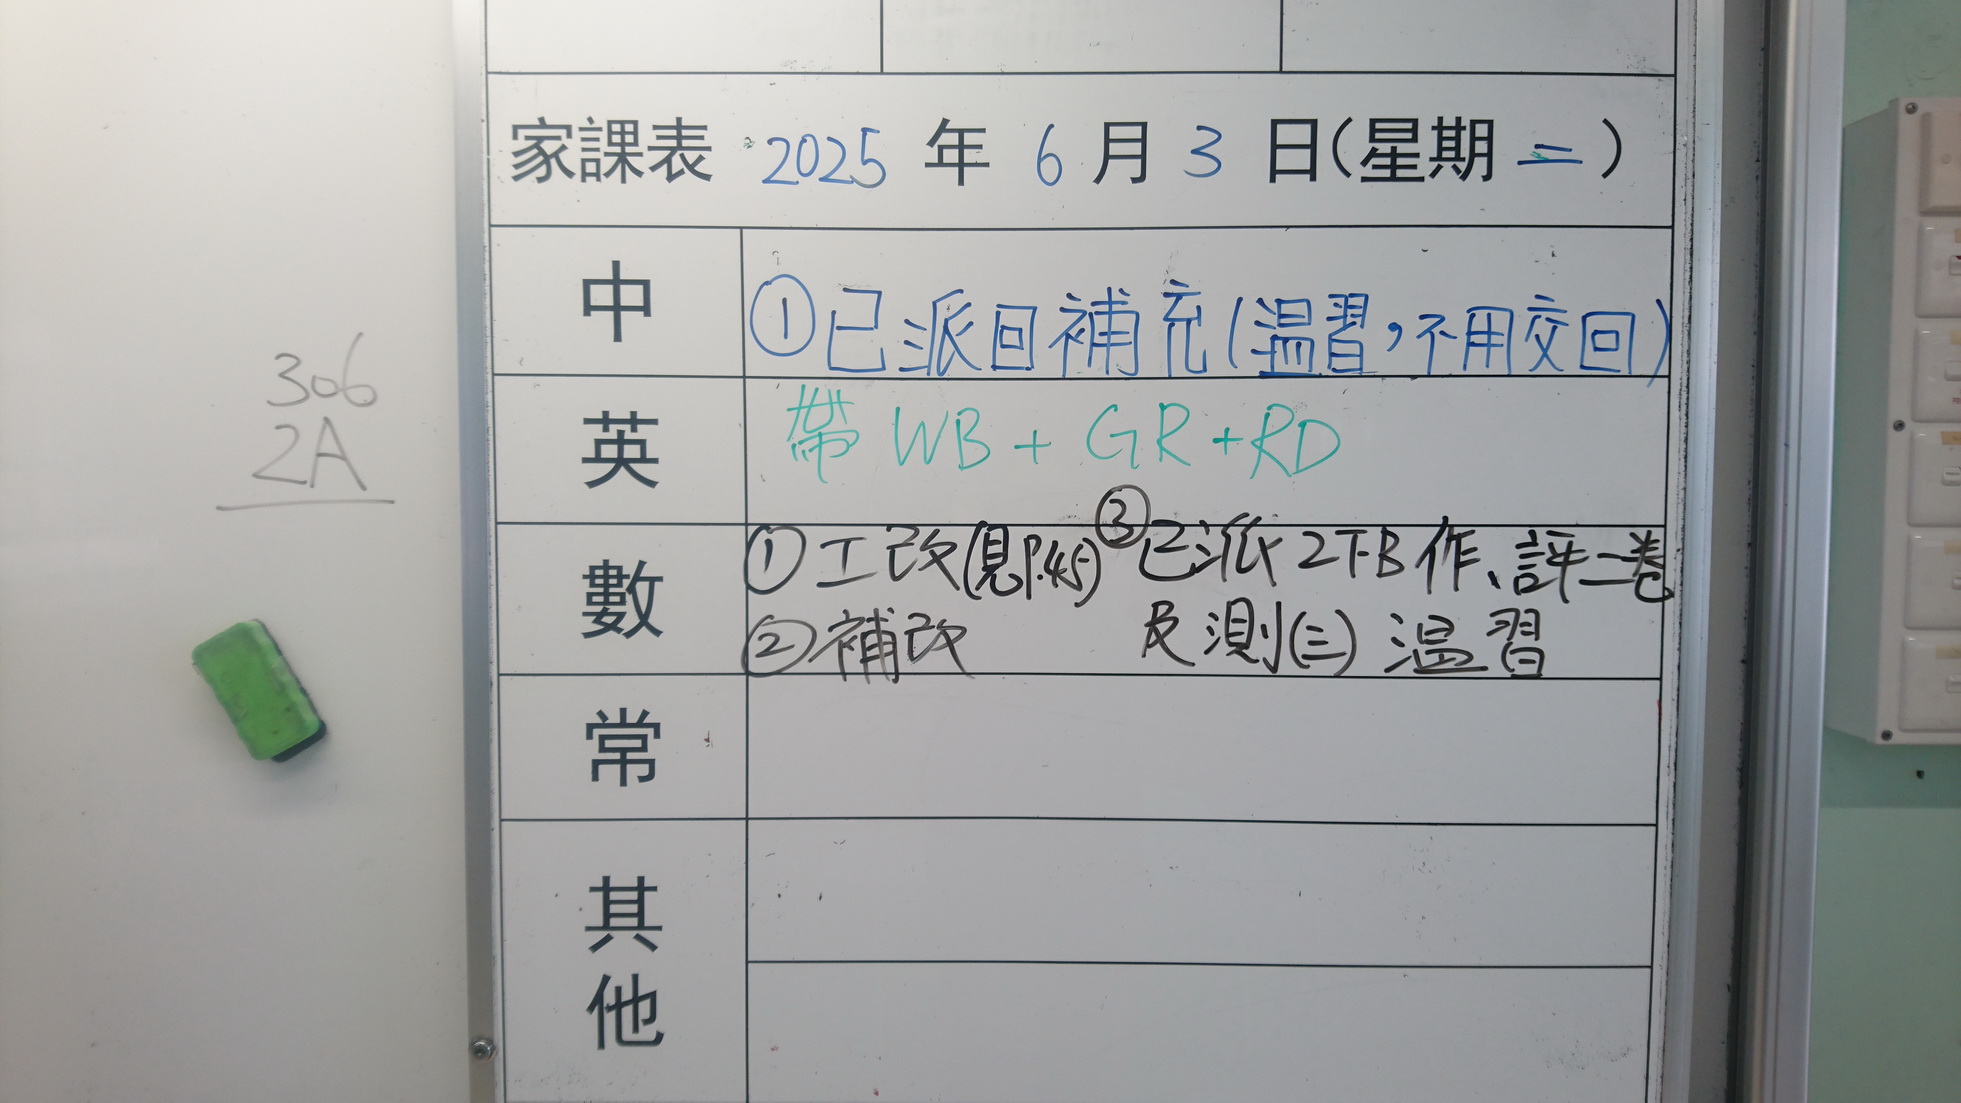 家課表 2025 年 6 月 3 日(星期二)
306
2A
中
①已派回補充(温習,不用交回)
英
帶 WB + GR + RD
數
①工改(見P.45) ③已派2下B作、評二卷
②補改 及測(三)温習
常
其他